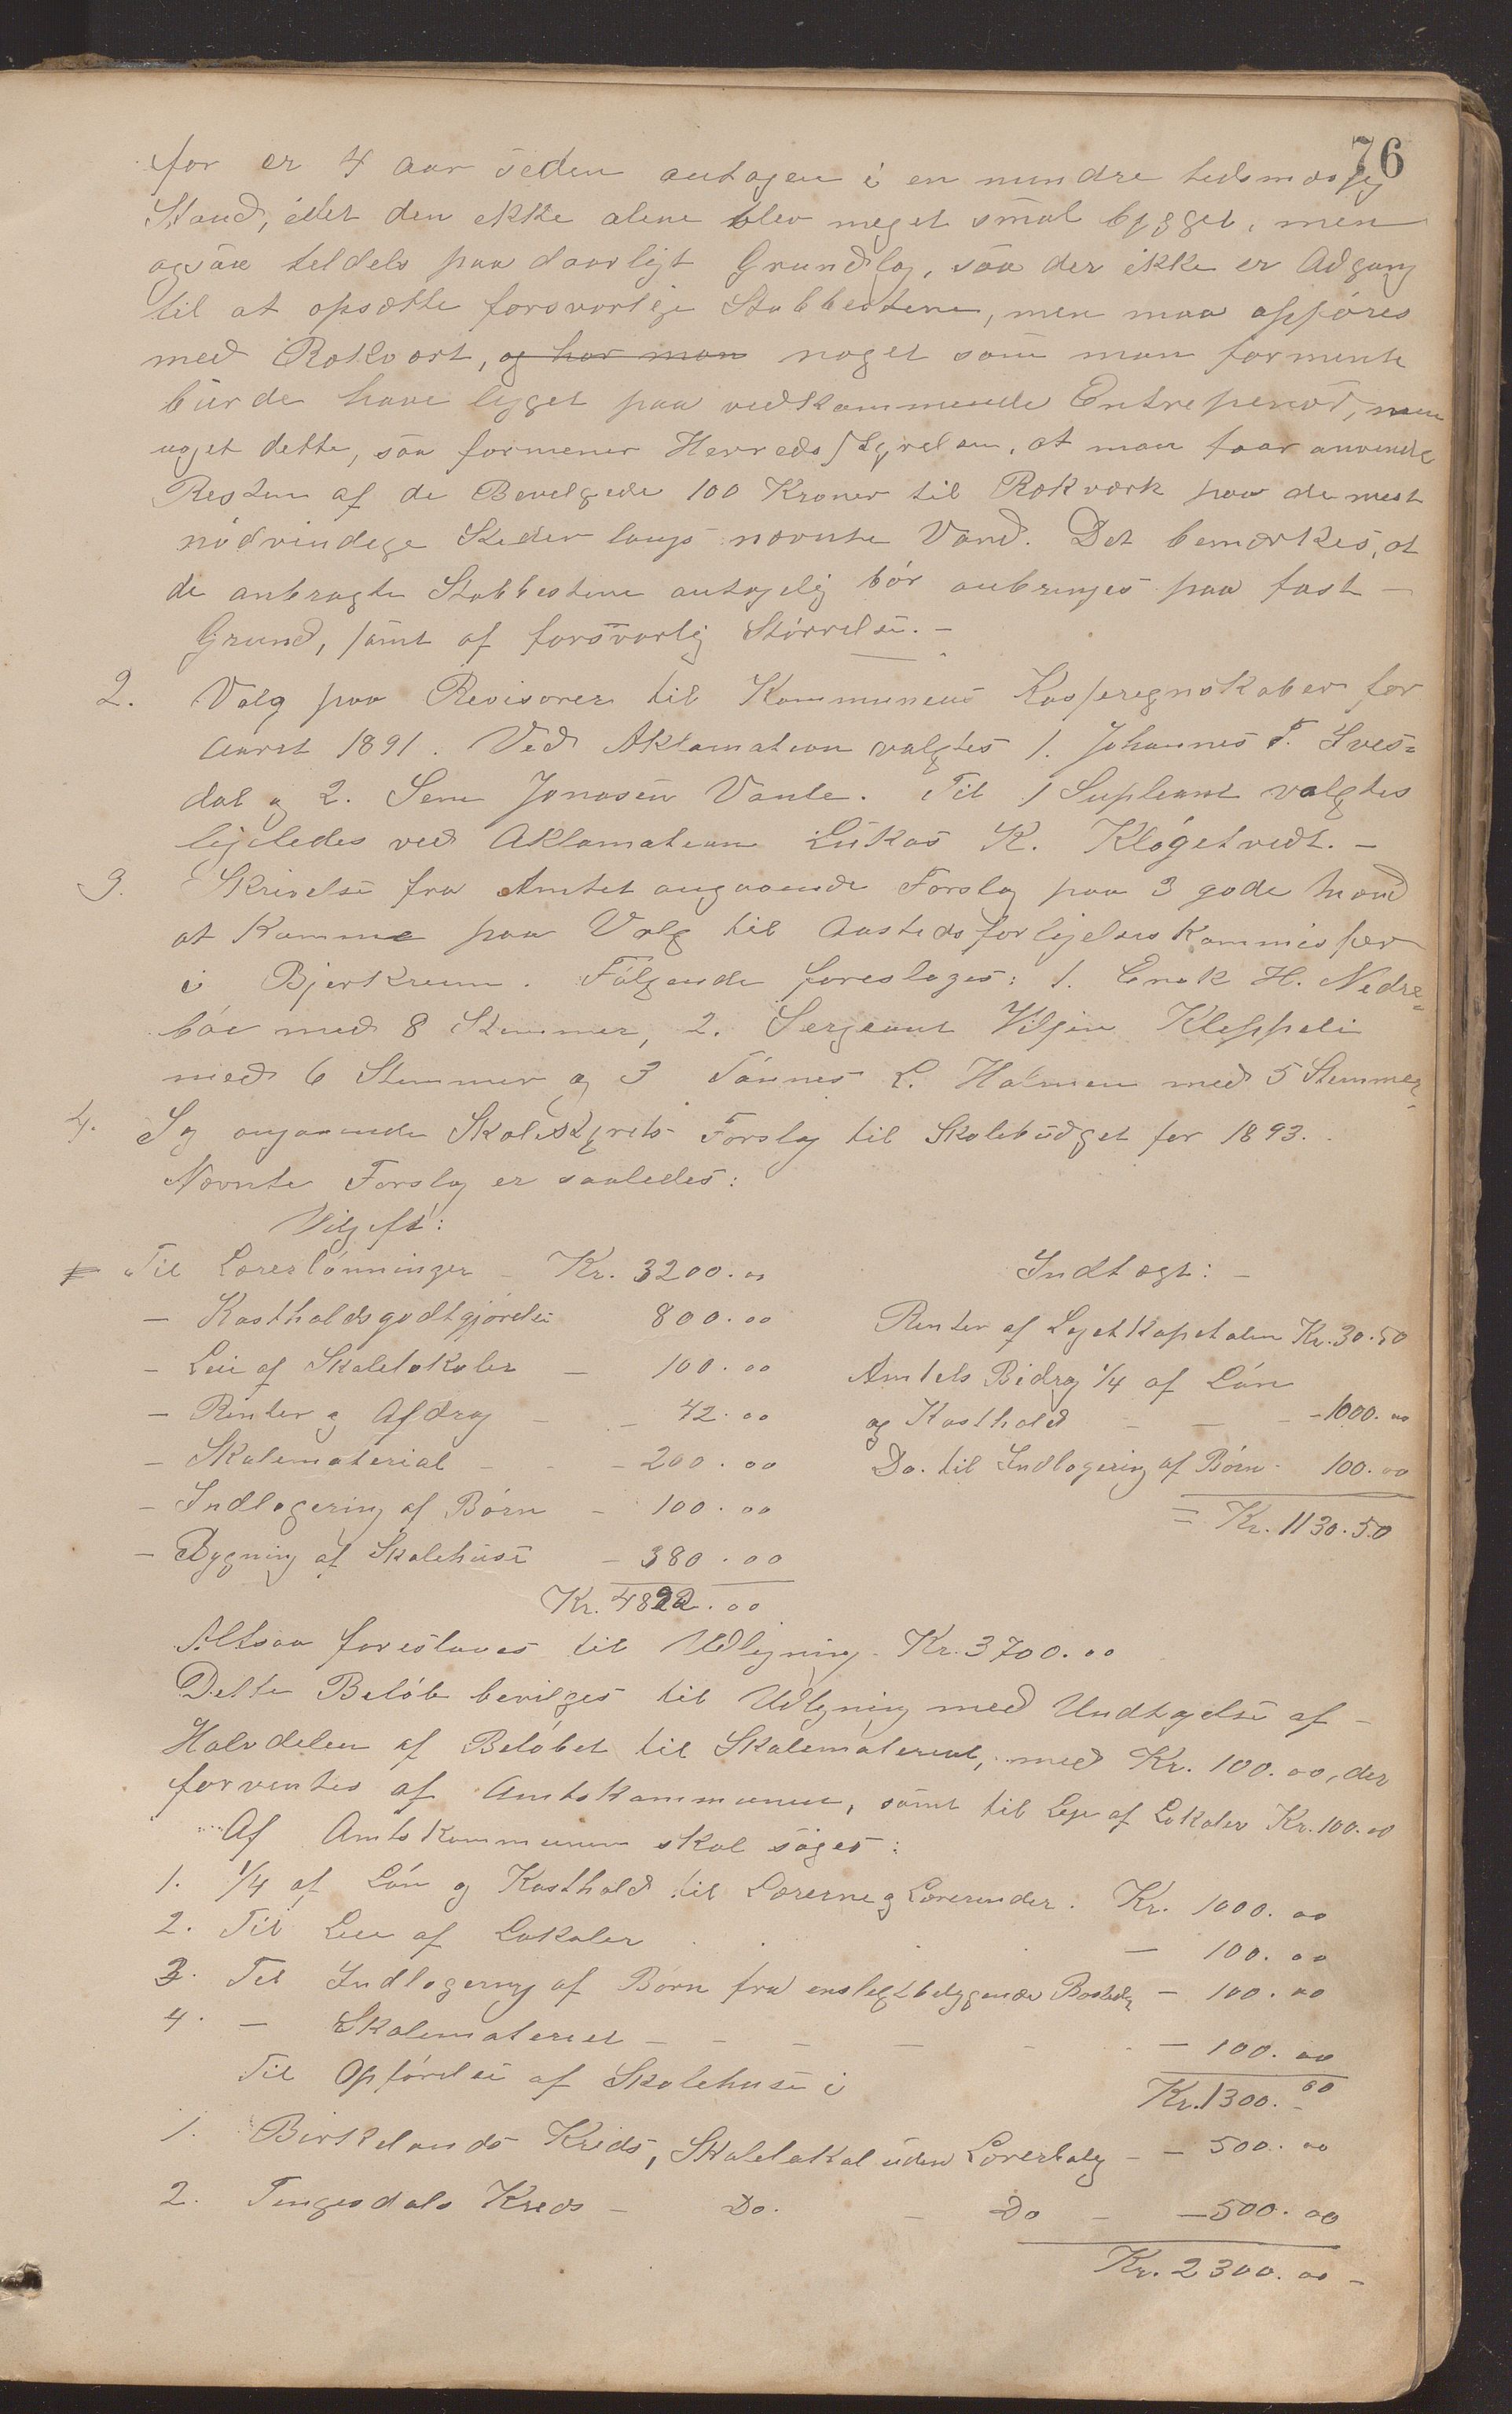 76
for er 4 aar siden antagen i en mindre tidsmæssig
Stand, idet den ikke alene blev meget smal bygget, men
ogsaa tildels paa daarligt Grundlag, saa der ikke er Adgang
til at opsætte forsvarlige Stabbestene, men maa opføres
med Rækværk, og har man noget som man formente
burde have ligget paa vedkommende Entreprenør, men
uagtet dette, saa formener Herredsstyrelsen, at man faar anvende
Resten af de Bevilgede 100 Kroner til Rækværk paa de mest
nødvendige Steder langs nævnte Vand. Det bemærkes, at
de anbragte Stabbestene antagelig bør anbringes paa fast
Grund, samt af forsvarlig Størrelse. –
2. Valg paa Revisorer til Kommunens Kasseregnskaber for
Aaret 1891. Ved Aklamation valgtes 1. Johannes T. Ives=
dal og 2. Sem Jonasen Vaule. Til 1 Supleant valgtes
ligeledes ved Aklamation Lukas K. Kløgetvedt. –
3. Skrivelse fra Amtet angaaende Forslag paa 3 gode Mænd
at komme paa Valg til Aastedsforligelseskommissær
i Bjerkreim. Følgende foresloges: 1. Enok H. Nedre=
bøe med 8 Stemmer, 2. Sergeant Viljen Kleppeli
med 6 Stemmer og 3 Tønnes L. Holmen med 5 Stemmer.
4. Sag angaaende Skolestyrets Forslag til Skolebudget for 1893.
Nævnte Forslag er saaledes:
Udgift:
Til Lærerlønninger – Kr. 3200.00
– Kostholdsgodtgjørelse 800.00
– Leie af Skolelokaler – 100.00
– Renter og Afdrag – – 42.00
– Skolemateriel – – – 200.00
– Indlogering af Børn – 100.00
– Bygning af Skolehuse – 380.00
Kr. 4822.00
Indtægt: –
Renter af Legatkapitalen Kr. 30.50
Amtets Bidrag 1/4 af Løn
og Kosthold – – – 1000.00
Do. til Indlogering af Børn – 100.00
= Kr. 1130.50
Altsaa foreslaaes til Udligning – Kr. 3700.00
Dette Beløb bevilges til Udligning med Undtagelse af –
Halvdelen af Beløbet til Skolemateriel, med Kr. 100.00, der
forventes af Amtskommunen, samt til Leje af Lokaler Kr. 100.00
Af Amtskommunen skal søges:
1. 1/4 af Løn og Kosthold til Lærerne og Lærerinder. Kr. 1000.00
2. Til Leie af Lokaler – 100.00
3. Til Indlogering af Børn fra ensligtbeliggende Bosteder – 100.00
4. – Skolemateriel – – – – – 100.00
Kr. 1300.00
Til Opførelse af Skolehuse i
1. Birkelands Kreds, Skolelokal uden Lærerbolig – – 500.00
2. Tengesdals Kreds – Do. – Do – – 500.00
Kr. 2300.00 –